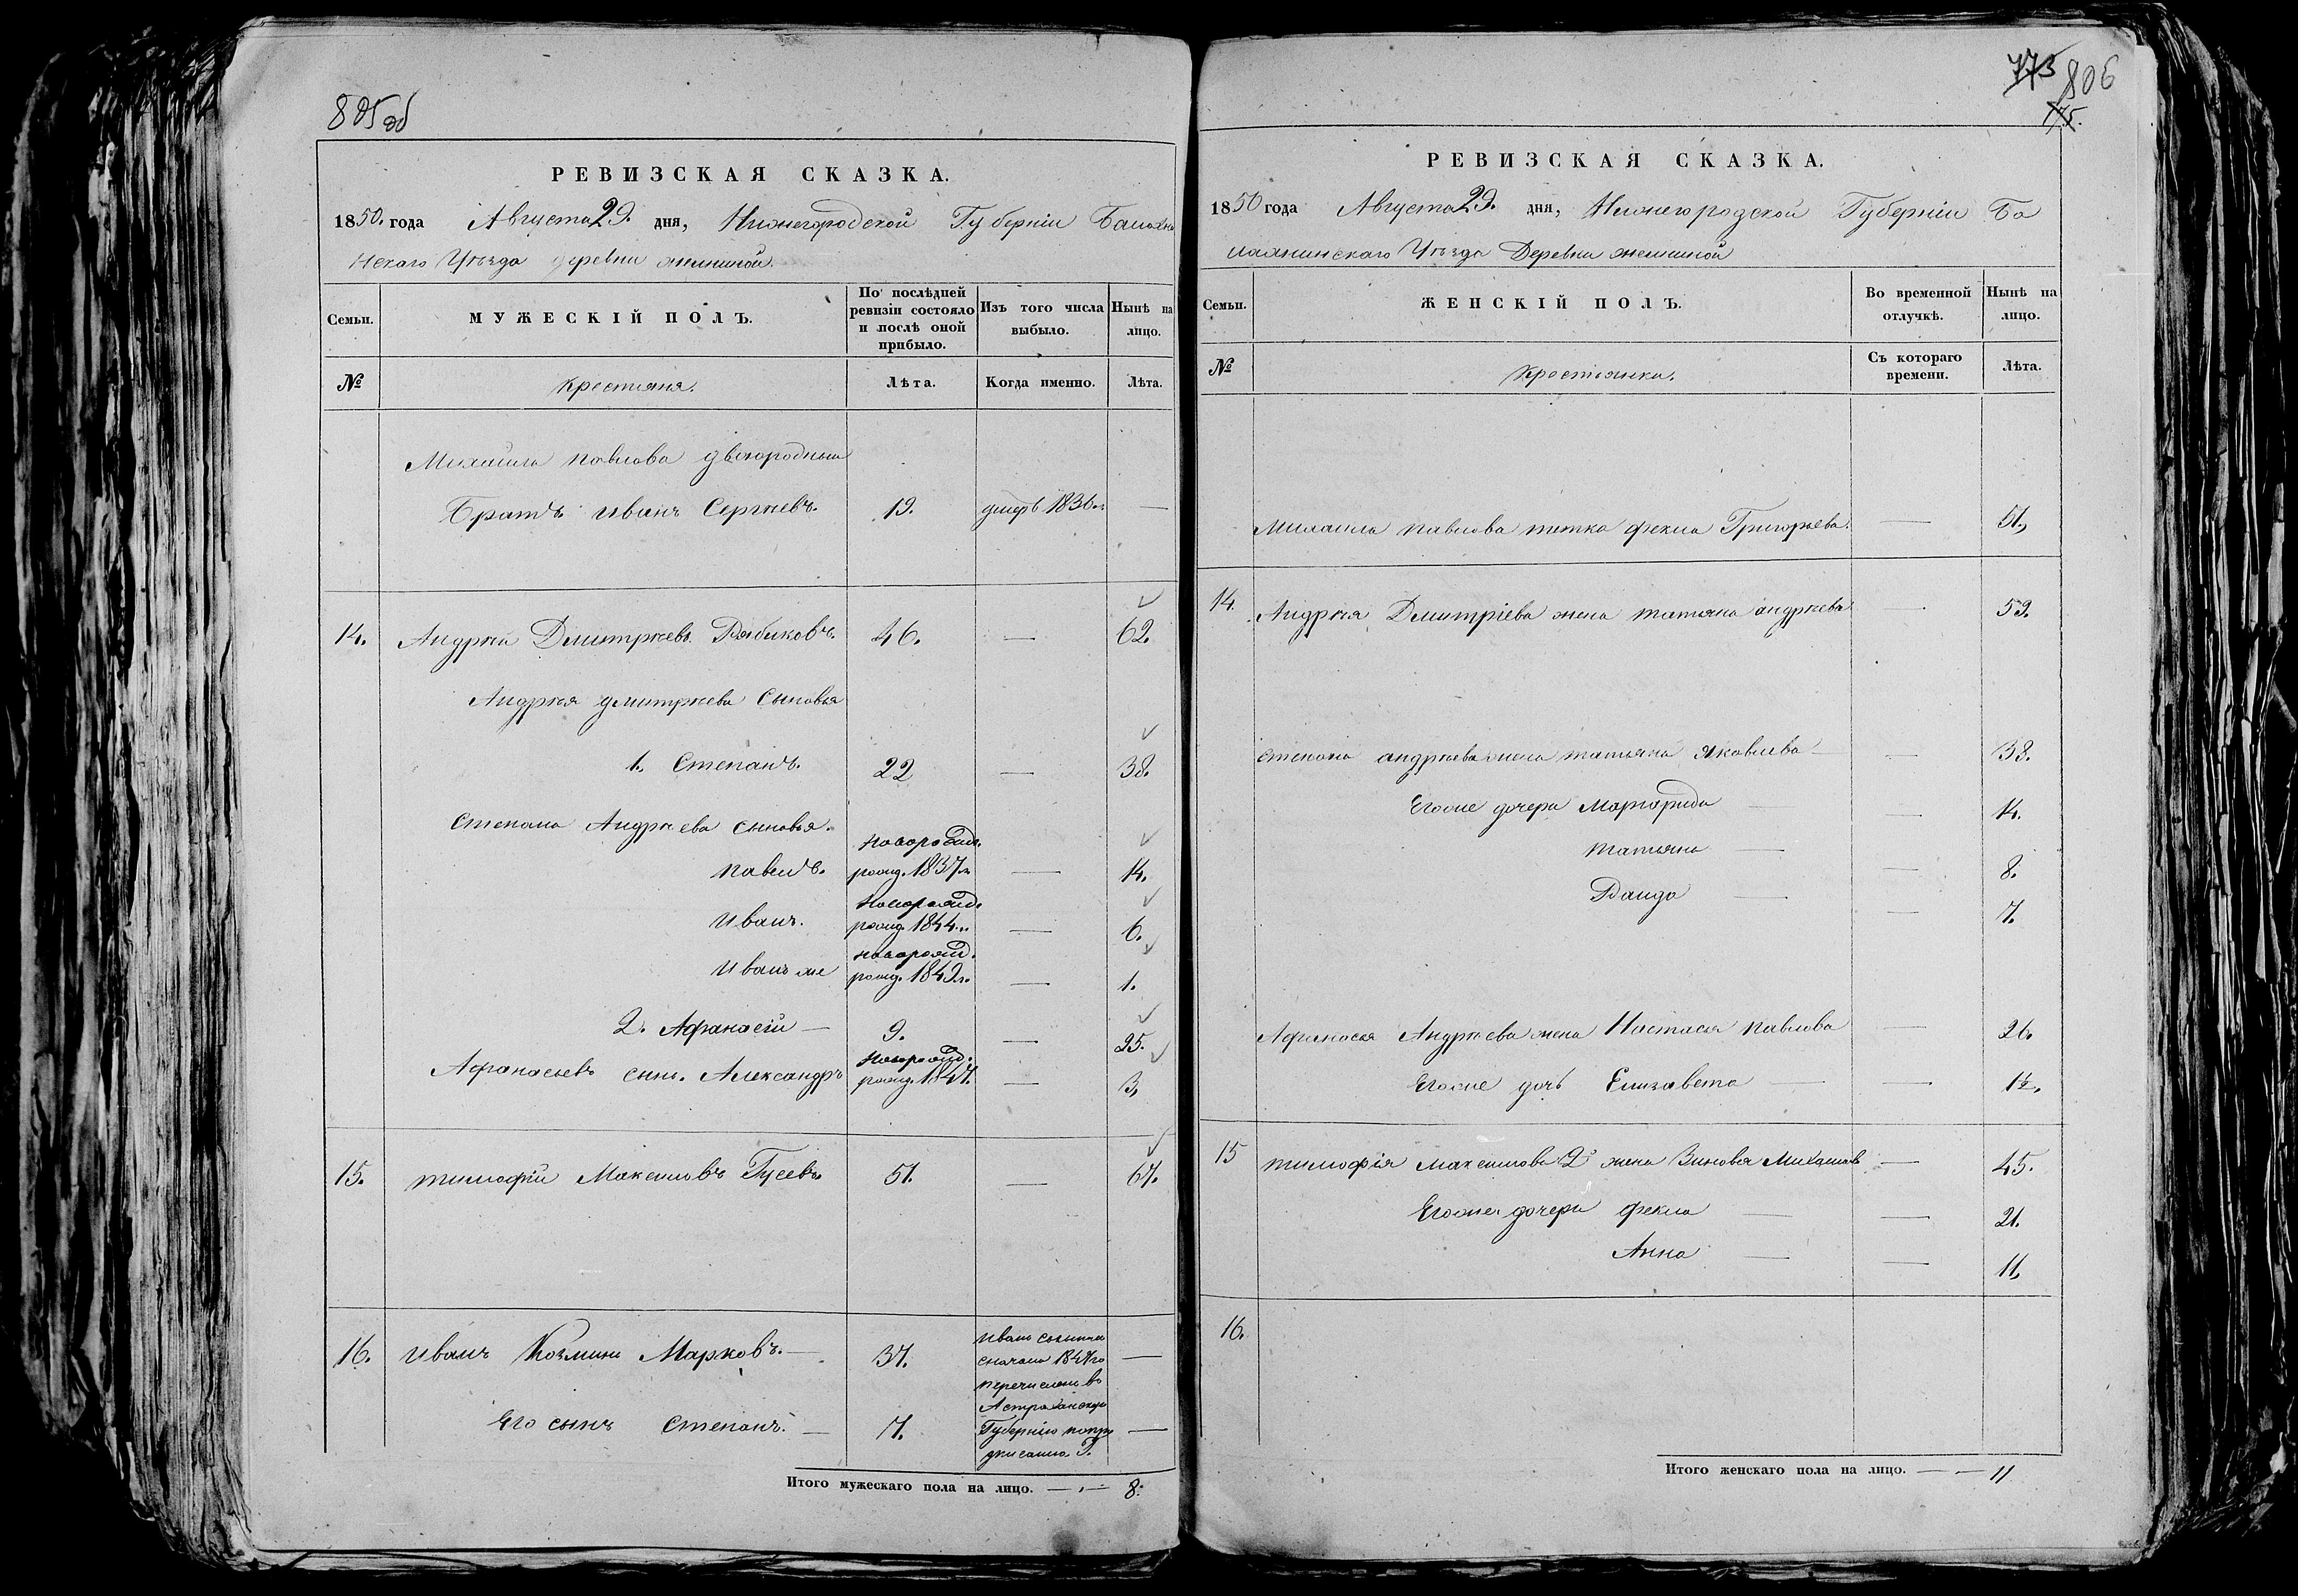 805 об
РЕВИЗСКАЯ СКАЗКА.
1850. года Августа 29. дня, Нижегородской Губерніи Балахни
нскаго Уѣзда деревни
Семьи.
МУЖЕСКІЙ ПОЛЪ.
По послѣдней ревизіи состояло и послѣ оной прибыло.
Изъ того числа выбыло.
Нынѣ на лицо.
№
Крестьяня.
Лѣта.
Когда именно.
Лѣта.
Михайла павлова двоюродный
Братъ иванъ Сергѣевъ. 19. умеръ 1836 г. —
14. Андрѣй Дмитрѣевъ Рябиковъ. 46. — 62.
Андрѣя дмитрѣева Сыновья
1. Степанъ. 22 — 38.
Степана Андрѣева сыновья.
новорожд.
павелъ. рожд. 1837 г. — 14.
новорожд.
иванъ. рожд. 1844 г. — 6.
новорожд.
иванъ же рожд. 1849 г. — 1.
2. Афанасій — 9. — 25.
новорожд.
Афанасьевъ сынъ. Александръ рожд. 1847. — 3,
15. тимофѣй Максимовъ Гусевъ. 51. — 67.
16. иванъ Козминъ Марковъ. — 37. —
иванъ сыномъ
сначала 1847 го
перечисленъ въ
Астраханскую
Его сынъ Степанъ. — 7. —
Губернію попре
дписанію
Итого мужескаго пола на лицо. — 8.
773 806
775.
РЕВИЗСКАЯ СКАЗКА.
1850 года Августа 29. дня, Нижегородской Губерніи Ба
лахнинскаго Уѣзда Деревни
Семьи.
ЖЕНСКІЙ ПОЛЪ.
Во временной отлучкѣ.
Нынѣ на лицо.
№
Крестьянки.
Съ котораго времени.
Лѣта.
Михаила павлова тетка фекла Григорьева. — 51,
14. Андрѣя Дмитріева жена татьяна андрѣева 59.
степана андрѣева жена татьяна Яковлева — — 38.
Егоже дочери Маргарида — — 14.
татьяна — — 8.
— — 7.
Афанасья Андрѣева жена Настасья павлова — 26.
Егоже дочь Елизавета — — 1½.
15 тимофѣя максимова 2я жена Зиновья Михаилова — 45.
Егоже дочери фекла — — 21.
Анна — — 11,
16.
Итого женскаго пола на лицо. — — 11